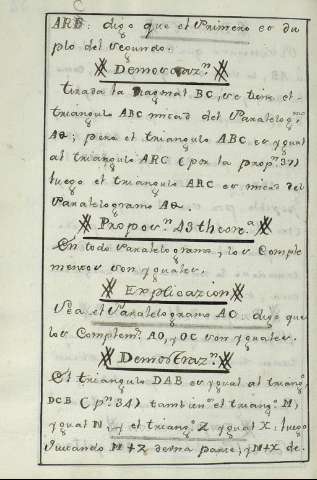 C
ARB: digo que el Primero es du
plo del segundo.
Demostraz.n
tirada la Diagonal BC, se tiene el
triangulo ABC mitad del Paralelog.mo
AQ; pero el triangulo ABC es ygual
al triangulo ARC (por la prop.n 37)
luego el triangulo ARC es mitad del
Paralelogramo AQ.
Propos.n 43 theor.a
En todo Paralelogramo, los Comple
mentos son yguales.
Explicazion
Sea el Paralelogramo AC digo que
los Complem.s AO, y OC son yguales.
Demostraz.n
El triangulo DAB es ygual al triang.o
DCB (p.n 34) tambien el triang.o M,
ygual N; y el triang.o Z ygual X: luego
quitando M+Z de una parte, y N+X de.